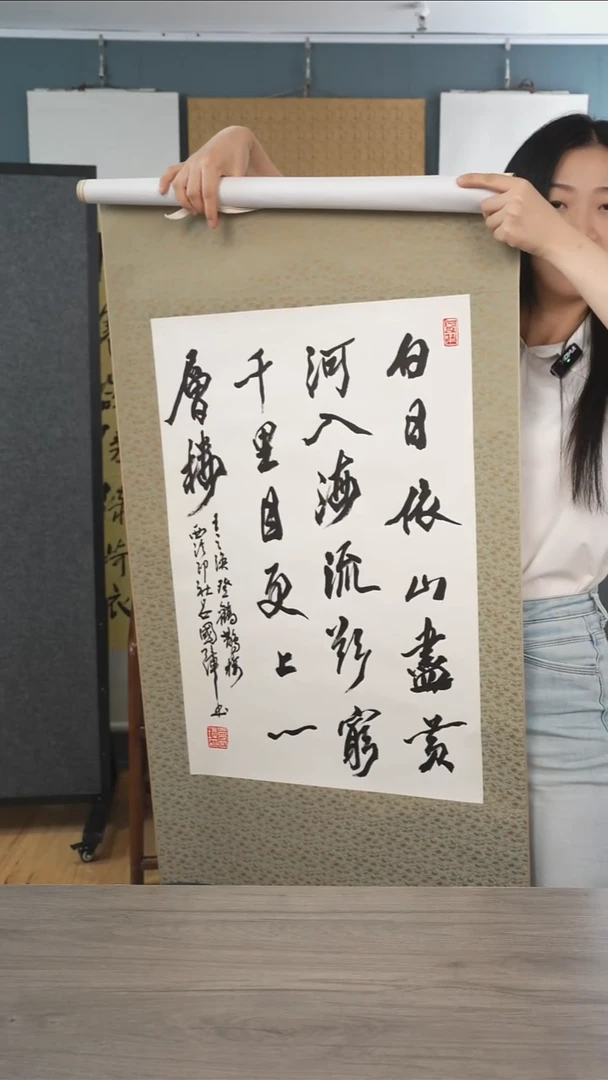 白日依山盡黃
河入海流欲窮
千里目更上一
層樓
王之渙登鸛鵲樓
西泠印社呂國书